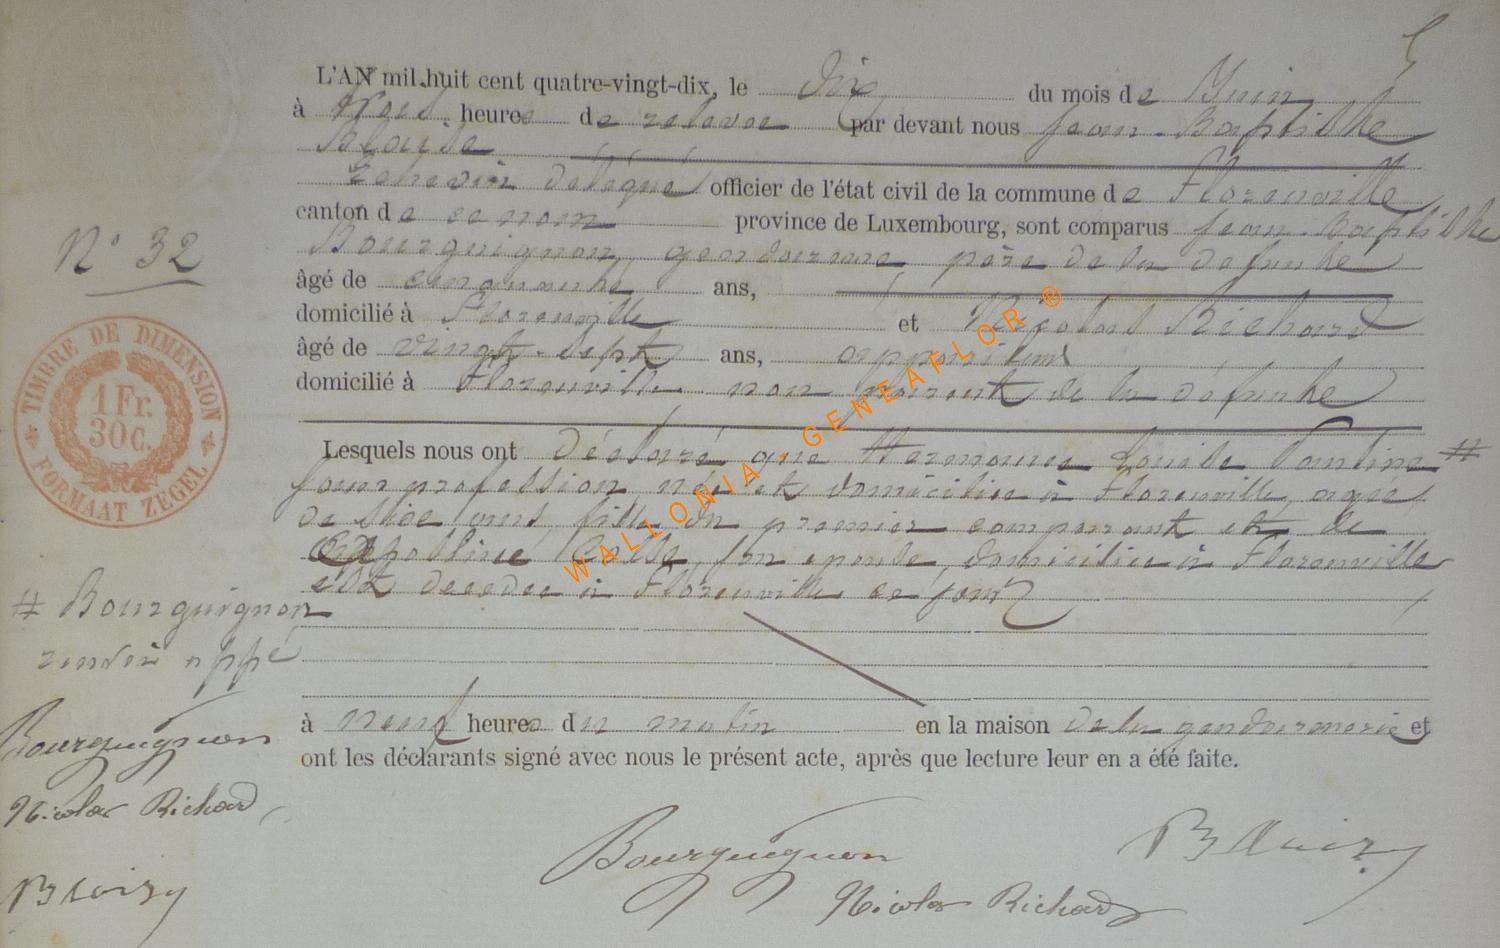 5
L'AN mil huit cent quatre-vingt-dix, le dix du mois de Juin
à trois heures de relevée par devant nous Jean-Baptiste
Blaise
Echevin délégué officier de l'état civil de la commune de Florenville
canton de ce nom province de Luxembourg, sont comparus Jean-Baptiste
Bourguignon, gendarme, père de la defunte
âgé de cinquante ans,
domicilié à Florenville et Nicolas Richard
âgé de vingt-sept ans, appariteur
domicilié à Florenville non parent de la défunte
Lesquels nous ont déclaré que Louise Pauline #
sans profession, née et domiciliée à Florenville, agée
de seize ans, fille du premier comparant et de
son epouse, domiciliée à Florenville
est decedée à Florenville ce jour
à neuf heures du matin en la maison de la gendarmerie et
ont les déclarants signé avec nous le présent acte, après que lecture leur en a été faite.
Bourguignon
Nicolas Richard
N° 32
TIMBRE DE DIMENSION
1 Fr.
30 c.
FORMAAT ZEGEL
# Bourguignon
renvoi appé
Bourguignon
Nicolas Richard
WALLONIA-GENEAFLOR ®